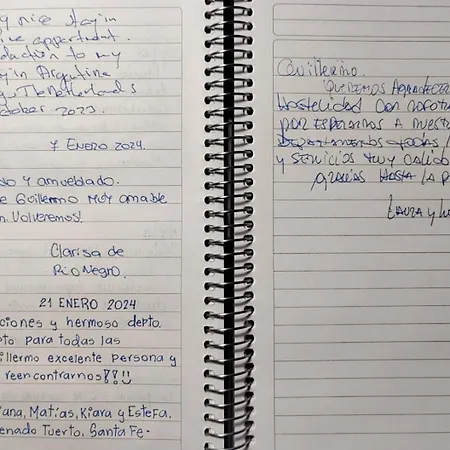 y nice stay in
apartment.
to my
in Argentina
Netherlands
2023.
7 ENERO 2024.
y amueblado.
e Guillermo muy amable
n. Volveremos!
Clarisa de
Rio Negro.
21 ENERO 2024
ciones y hermoso depto.
to para todas las
illermo excelente persona y
reencontrarnos!!
ana, Matías, Kiara y Estefa.
enado Tuerto, Santa Fe-
Guillermo.
QUEREMOS AGRADECER
HOSTELIDAD CON NOSOTR
POR ESPERARNOS A NUESTR
DEPARTAMENTO
Y SERVICIOS MUY CALIDO
GRACIAS HASTA LA P
LAURA y